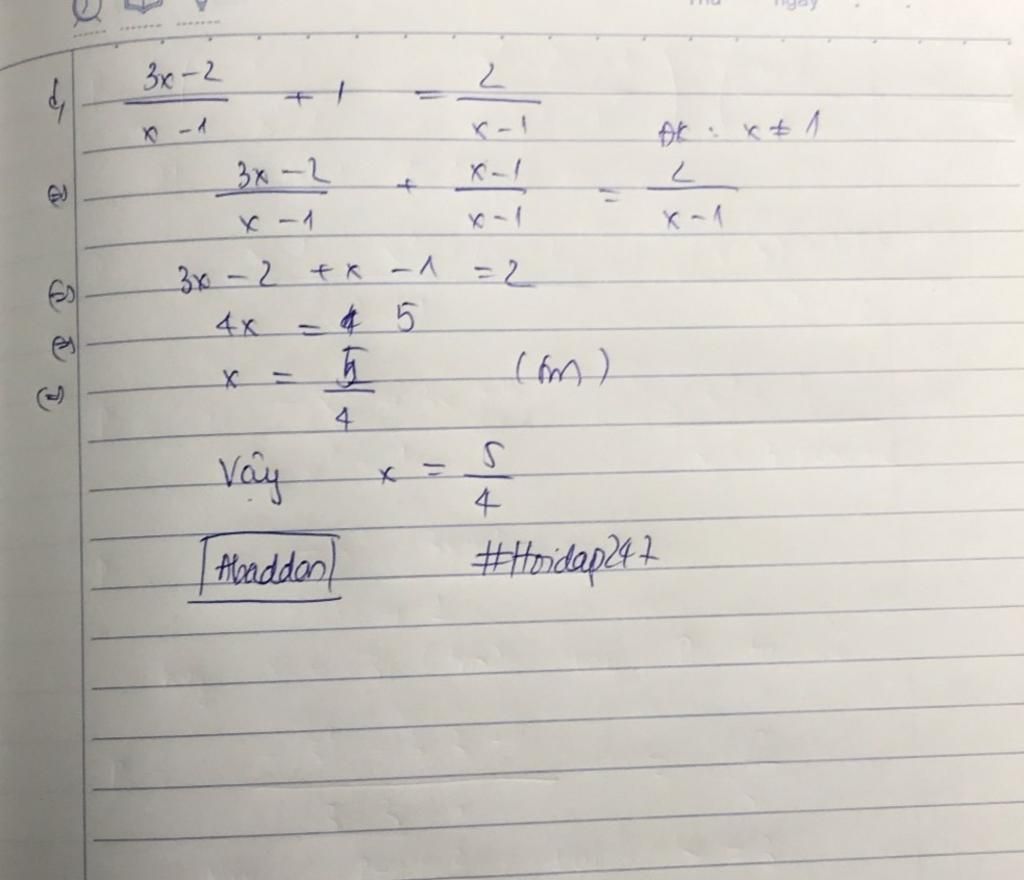 Thứ ngày
d, (3x-2)/(x-1) + 1 = 2/(x-1) ĐK : x ≠ 1
(=) (3x-2)/(x-1) + (x-1)/(x-1) = 2/(x-1)
(=) 3x - 2 + x - 1 = 2
(=) 4x = 5
(=) x = 5/4 (tm)
Vậy x = 5/4
Abaddon #Hoidap247